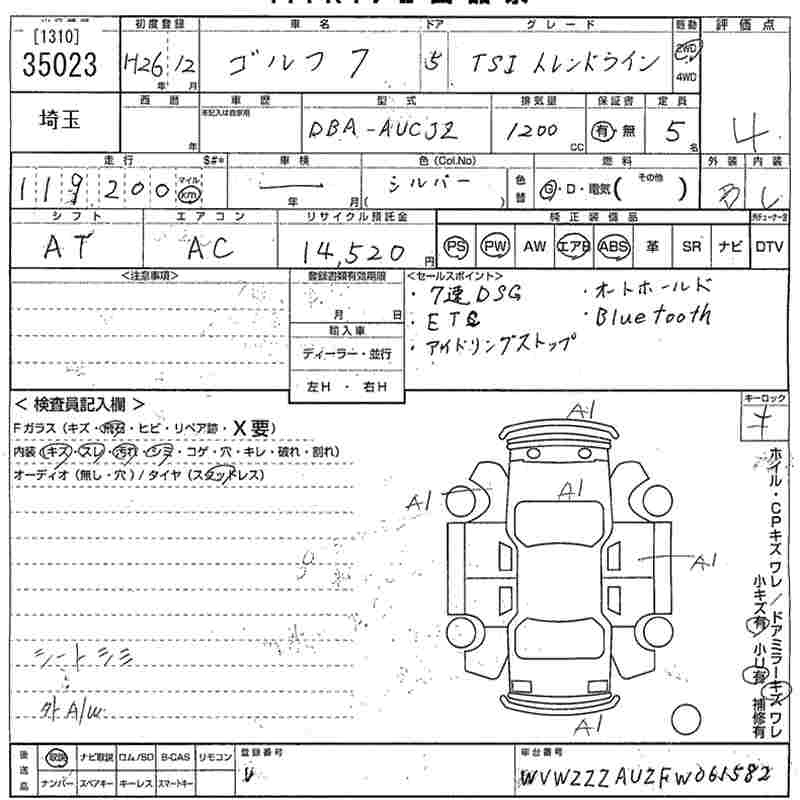 [1310]
35023
初度登録 車名 ドア グレード 駆動 評価点
H26 12 ゴルフ7 5 TSI トレンドライン 2WD 4WD
年 月
埼玉
西暦 車歴 型式 排気量 保証書 定員
年 未記入は自家用 DBA-AUCJZ 1200 CC 有・無 5名 4
走行 S#* 車検 色(Col.No) 燃料 外装 内装
119200 マイル km 年 月 シルバー ( ) 色替 G・D・電気( その他 )
シフト エアコン リサイクル預託金 純正装備品
AT AC 14,520円 PS PW AW エアB ABS 革 SR ナビ DTV
<注意事項> 登録書類有効期限 <セールスポイント>
月 日
・7速DSG ・オートホールド
・ETC ・Bluetooth
・アイドリングストップ
輸入車
ディーラー・並行
左H ・ 右H
< 検査員記入欄 >
Fガラス(キズ・飛石・ヒビ・リペア跡・X要)
内装(キズ・スレ・汚れ・シミ・コゲ・穴・キレ・破れ・割れ)
オーディオ(無し・穴)/タイヤ(スタッドレス)
キーロック
キ
A1
A1
A1
A1
A1
ホイル・CPキズ ワレ/ドアミラーキズ ワレ
小キズ有 小U有 補修有
シートシミ
外A/W
後送品 取説 ナビ取説 ロム/SD B-CAS リモコン 登録番号 車台番号
ナンバー スペアキー キーレス スマートキー WVWZZZAUZFW061582